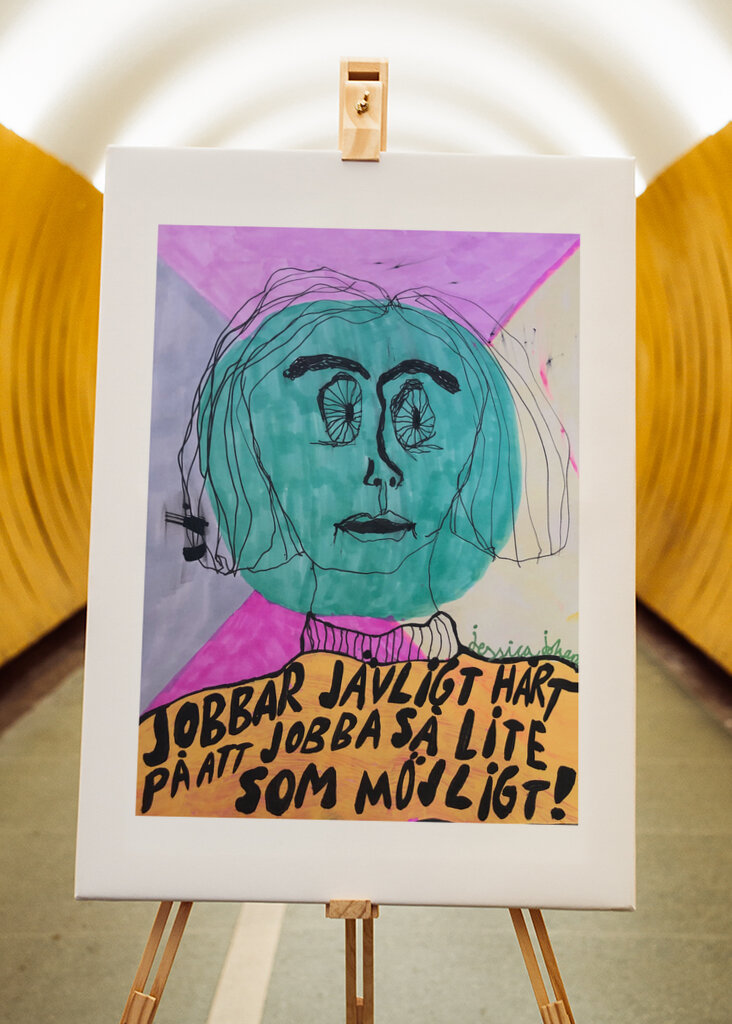 jessica
JOBBAR JÄVLiGT HÅRT
PÅ ATT JOBBA SÅ LiTE
SOM MÖJLiGT!